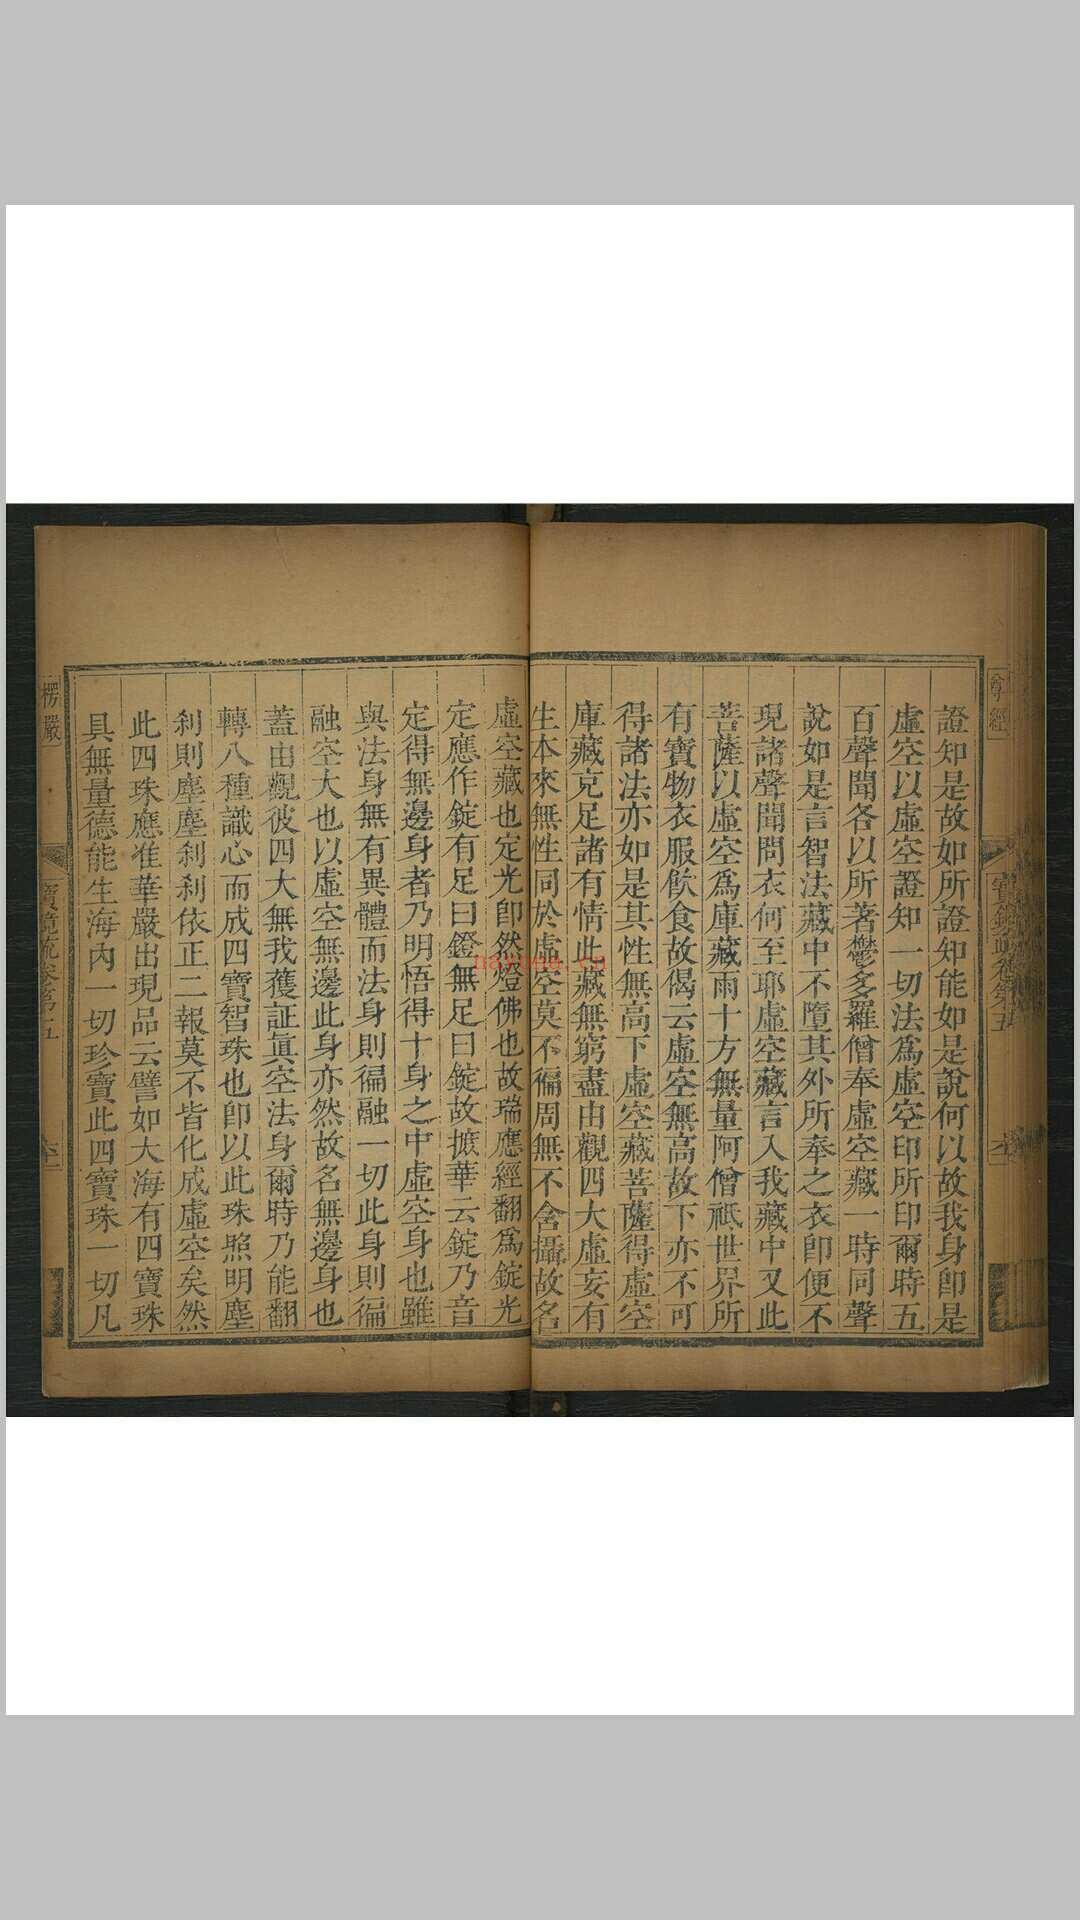 證知是故如所證知能如是說何以故我身卽是
虛空以虛空證知一切法爲虛空印所印爾時五
百聲聞各以所著鬱多羅僧奉虛空藏一時同聲
說如是言智法藏中不墮其外所奉之衣卽便不
現諸聲聞問衣何至耶虛空藏言入我藏中又此
菩薩以虛空爲庫藏雨十方無量阿僧祇世界所
有寶物衣服飮食故偈云虛空無高故下亦不可
得諸法亦如是其性無高下虛空藏菩薩得虛空
庫藏充足諸有情此藏無窮盡由觀四大虛妄有
生本來無性同於虛空莫不徧周無不含攝故名
虛空藏也定光卽然燈佛也故瑞應經翻爲錠光
定應作錠有足曰鐙無足曰錠故摭華云錠乃音
定得無邊身者乃明悟得十身之中虛空身也雖
與法身無有異體而法身則徧融一切此身則徧
融空大也以虛空無邊此身亦然故名無邊身也
蓋由觀彼四大無我獲証眞空法身爾時乃能翻
轉八種識心而成四寶智珠也卽以此珠照明塵
刹則塵塵刹刹依正二報莫不皆化成虛空矣然
此四珠應准華嚴出現品云譬如大海有四寶珠
具無量德能生海內一切珍寶此四寶珠一切凡
楞嚴
寶鏡疏卷第五